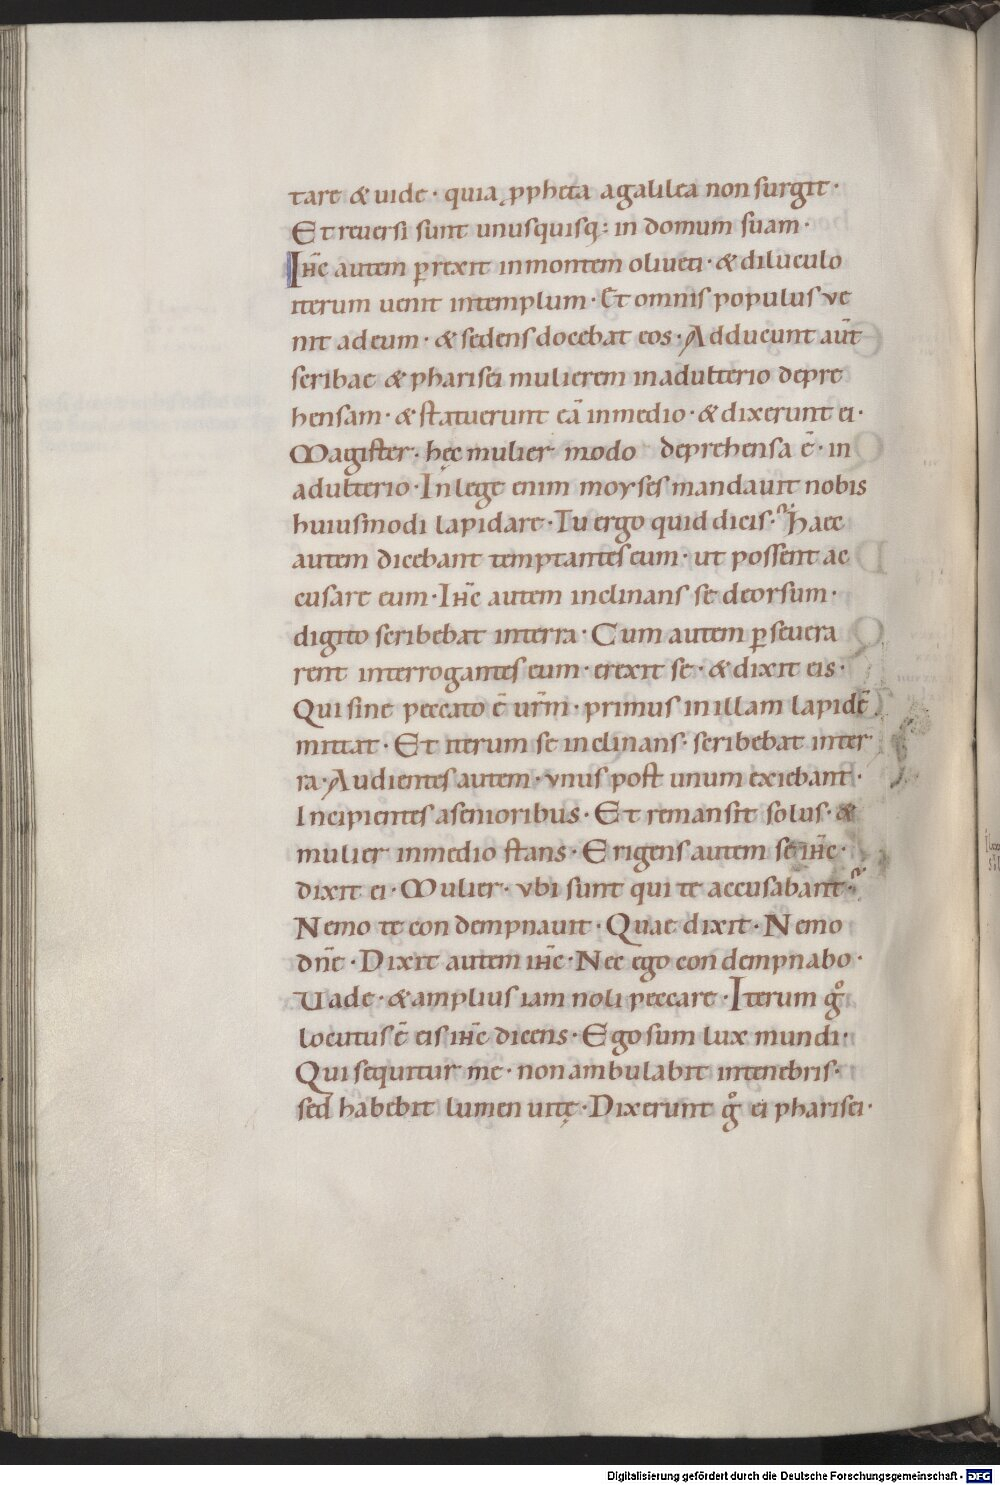 tare & uide · quia ꝓpheta a galilea non surgit ·
Et reuersi sunt unusquisq: in domum suam ·
Ihc̄ autem ꝑrexit in montem oliueti · & diluculo
iterum uenit in templum · Et omnis populus ve
nit ad eum · & sedens docebat eos · Adducunt aut̄
scribae & pharisei mulierem in adulterio depre
hensam · & statuerunt eā in medio · & dixerunt ei ·
Magister · hęc mulier modo deprehensa ē · in
adulterio · In lege enim moyses mandauit nobis
huiusmodi lapidare · Tu ergo quid dicis · Haec
autem dicebant temptantes eum · ut possent ac
cusare eum · Ihc̄ autem inclinans se deorsum ·
digito scribebat in terra · Cum autem ꝑseuera
rent interrogantes eum · erexit se · & dixit eis ·
Qui sine peccato ē urm̄ · primus in illam lapidē
mittat · Et iterum se inclinans · scribebat in ter
ra · Audientes autem · vnus post unum exiebant ·
Incipientes a senioribus · Et remansit solus · &
mulier in medio stans · Erigens autem se ihc̄ ·
dixit ei · Mulier · vbi sunt qui te accusabant ·
Nemo te condempnauit · Quae dixit · Nemo
dn̄e · Dixit autem ihc̄ · Nec ego condempnabo ·
Uade · & amplius iam noli peccare · Iterum gͦ
locutus ē eis ihc̄ dicens · Ego sum lux mundi ·
Qui sequitur me · non ambulabit in tenebris ·
sed habebit lumen uitę · Dixerunt gͦ ei pharisei ·
Digitalisierung gefördert durch die Deutsche Forschungsgemeinschaft - DFG